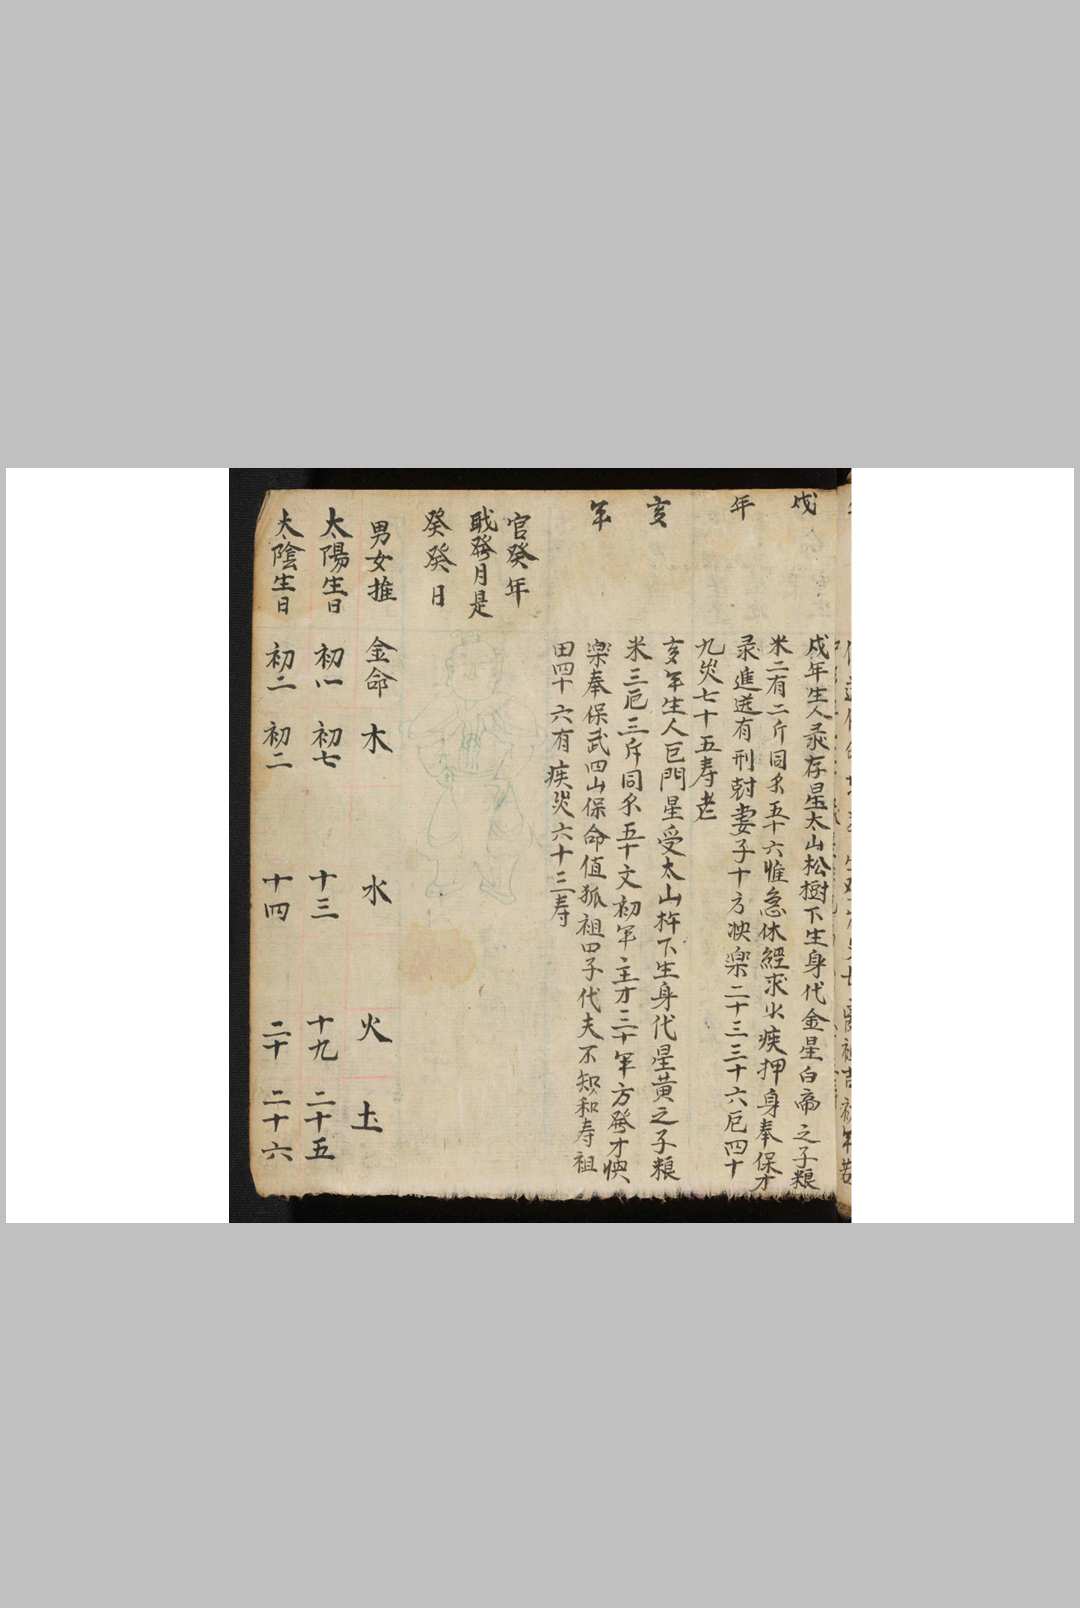 戌年
戌年生人彔存星太山松樹下生身代金星白帝之子粮
米二有二斤同糸五十六惟急休經求火疾押身奉保才
彔進送有刑尅妻子十方快楽二十三三十六厄四十
九災七十五寿老
亥年
亥年生人巨門星受太山杵下生身代星黄之子粮
米三厄三斤同糸五十文初年主才三十年方發才快
楽奉保武四山保命值狐祖田子代夫不知和寿祖
田四十六有疾災六十三寿
官癸年
戢發月是
癸癸日
男女推 金命 木 水 火 土
太陽生日 初八 初七 十三 十九 二十五
太陰生日 初二 初二 十四 二十 二十六